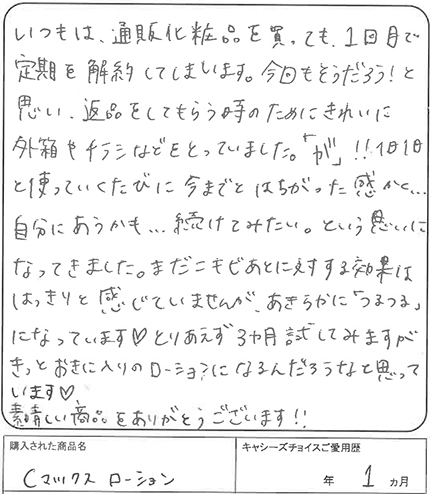 いつもは、通販化粧品を買っても、1回目で
定期を解約してしまいます。今回もそうだろう!と
思い、返品をしてもらう時のためにきれいに
外箱やチラシなどをとっていました。「が」!!1日1日
と使っていくたびに今までとはちがった感かく…
自分にあうかも…続けてみたい。という思いに
なってきました。まだニキビあとに対する効果は
はっきりと感じていませんが、あきらかに「つるつる」
になっています♡とりあえず3ヵ月試してみますが
きっとお気に入りのローションになるんだろうなと思って
います♡
素晴しい商品をありがとうございます!!
購入された商品名
キャシーズチョイスご愛用歴
Cマックス ローション
年 1 ヵ月